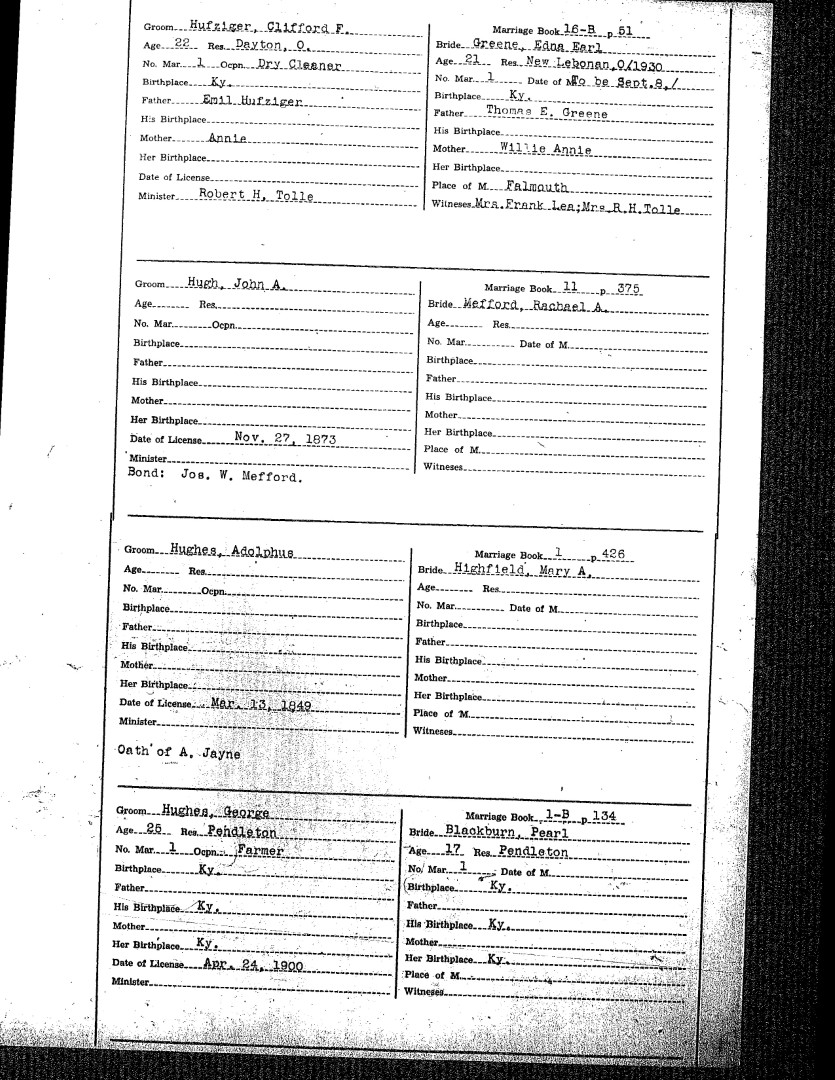 Groom Hufziger, Clifford F.
Age 22 Res. Dayton, O.
No. Mar. 1 Ocpn. Dry Cleaner
Birthplace Ky.
Father Emil Hufziger
His Birthplace
Mother Annie
Her Birthplace
Date of License
Minister Robert H. Tolle
Marriage Book 16-B p 51
Bride Greene, Edna Earl
Age 21 Res. New Lebonan, O/1930
No. Mar. 1 Date of M To be Sept.8,/
Birthplace Ky.
Father Thomas E. Greene
His Birthplace
Mother Willie Annie
Her Birthplace
Place of M. Falmouth
Witneses Mrs.Frank Lea;Mrs R.H.Tolle
Groom Hugh, John A.
Age Res.
No. Mar. Ocpn.
Birthplace
Father
His Birthplace
Mother
Her Birthplace
Date of License Nov. 27, 1873
Minister
Bond: Jos. W. Mefford.
Marriage Book 11 p 375
Bride Mefford, Rachael A.
Age Res.
No. Mar. Date of M.
Birthplace
Father
His Birthplace
Mother
Her Birthplace
Place of M.
Witneses
Groom Hughes, Adolphus
Age Res.
No. Mar. Ocpn.
Birthplace
Father
His Birthplace
Mother
Her Birthplace
Date of License Mar. 13, 1849
Minister
Oath of A. Jayne
Marriage Book 1 p 426
Bride Highfield, Mary A.
Age Res.
No. Mar. Date of M.
Birthplace
Father
His Birthplace
Mother
Her Birthplace
Place of M.
Witneses
Groom Hughes, George
Age 26 Res. Pendleton
No. Mar. 1 Ocpn. Farmer
Birthplace Ky.
Father
His Birthplace Ky.
Mother
Her Birthplace Ky.
Date of License Apr. 24, 1900
Minister
Marriage Book 1-B p 134
Bride Blackburn, Pearl
Age 17 Res. Pendleton
No. Mar. 1 Date of M.
Birthplace Ky.
Father
His Birthplace Ky.
Mother
Her Birthplace Ky.
Place of M.
Witneses